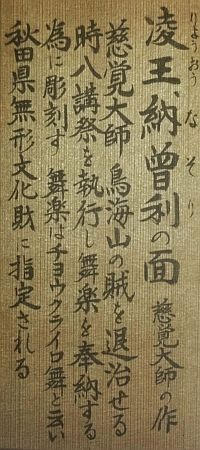 凌王、納曽利の面 慈覚大師の作
りようおう なそり
慈覚大師 鳥海山の賊を退治せる
時八講祭を執行し舞楽を奉納する
為に彫刻す 舞楽はチヨウクライロ舞と云い
秋田県無形文化財に指定される